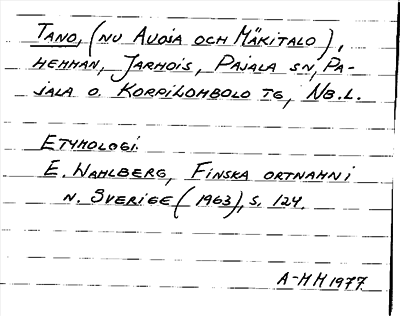 TANO, (NU AUOJA OCH MÄKITALO),
HEMMAN, JARHOIS, PAJALA SN, PA-
JALA O. KORPILOMBOLO TG, NB.L.
ETYMOLOGI:
E. WAHLBERG, FINSKA ORTNAMN I
N. SVERIGE (1963), S. 124.
A-MH 1977